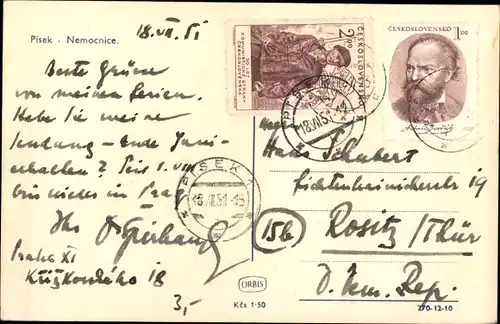 Písek - Nemocnice.
18. VII. 51
Beste Grüsse
von meinen Ferien.
Habe Sie meine
Sendung - Ende Juni
erhalten? Bis 1. VIII
bin wieder in Prag
Ihr
Praha XI
18
3,-
30 LET
KOMUNISTICKÉ STRANY
ČESKOSLOVENSKA
2.00
ČESKOSLOVENSKO
ČESKOSLOVENSKO
1.00
PÍSEK
18.VII.51
PÍSEK
Hans Schubert
Lichtenheinicherstr 19
15b
Rositz/Thür
D. Dem. Rep.
ORBIS
Kčs 1·50
270-12-10